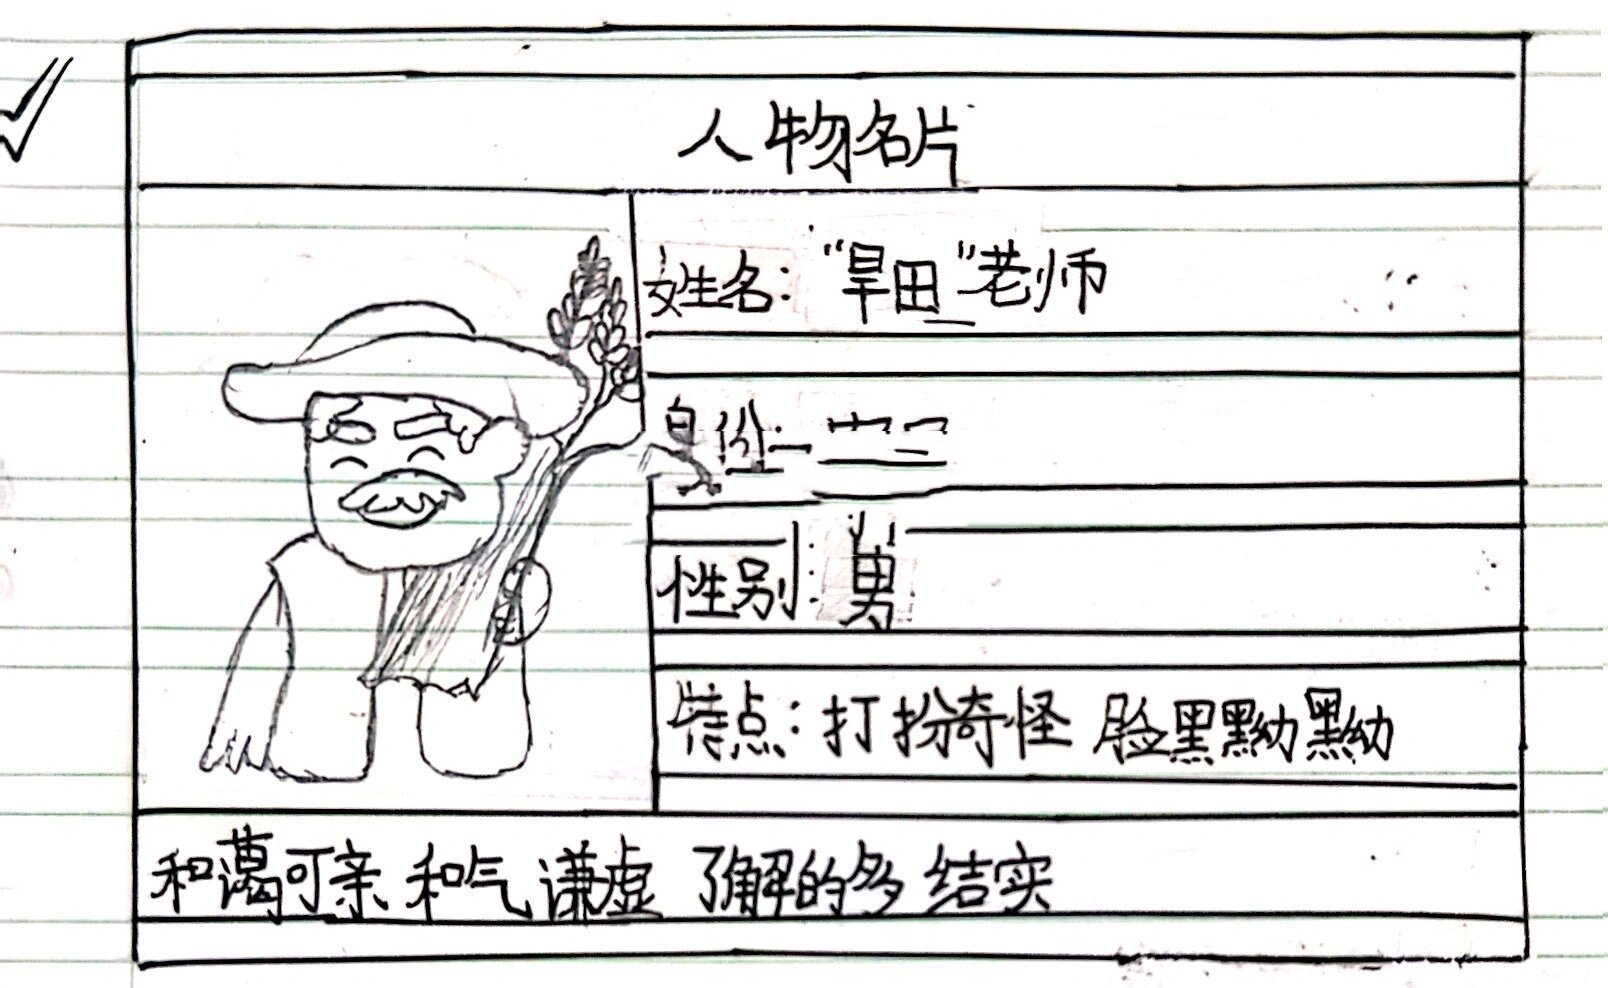 人物名片
姓名："旱田"老师
身份：
性别：男
特点：打扮奇怪 脸黑黝黝
和蔼可亲 和气 谦虚 了解的多 结实